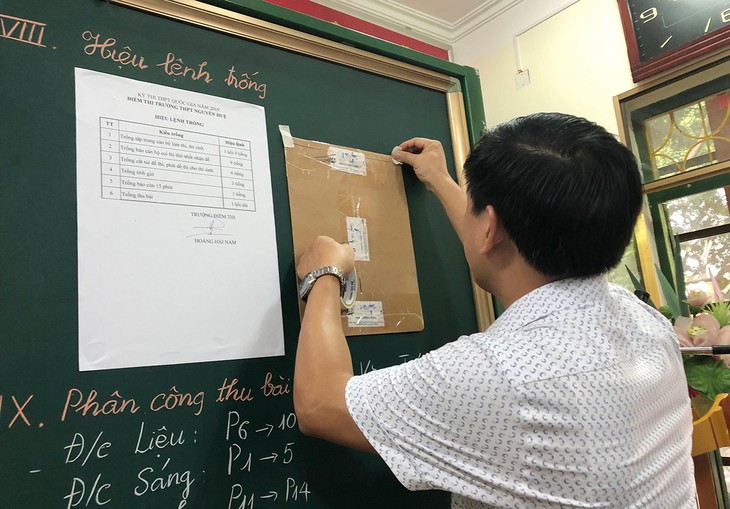 VIII. Hiệu lệnh trống
KỲ THI THPT QUỐC GIA NĂM 2019
ĐIỂM THI TRƯỜNG THPT NGUYỄN HUỆ
HIỆU LỆNH TRỐNG
TT Kiểu trống Hiệu lệnh
1 Trống tập trung cán bộ làm thi, thí sinh 1 hồi 9 tiếng
2 Trống báo cán bộ coi thi thứ nhất nhận đề
3 Trống cắt túi đề thi, phát đề thi cho thí sinh 6 tiếng
4 Trống tính giờ 6 tiếng
5 Trống báo còn 15 phút 3 tiếng
6 Trống thu bài 1 hồi dài
TRƯỞNG ĐIỂM THI
HOÀNG HẢI NAM
IX. Phân công thu bài
- Đ/c Liệu: P6 → 10
Đ/c Sáng: P1 → 5
P11 → P14